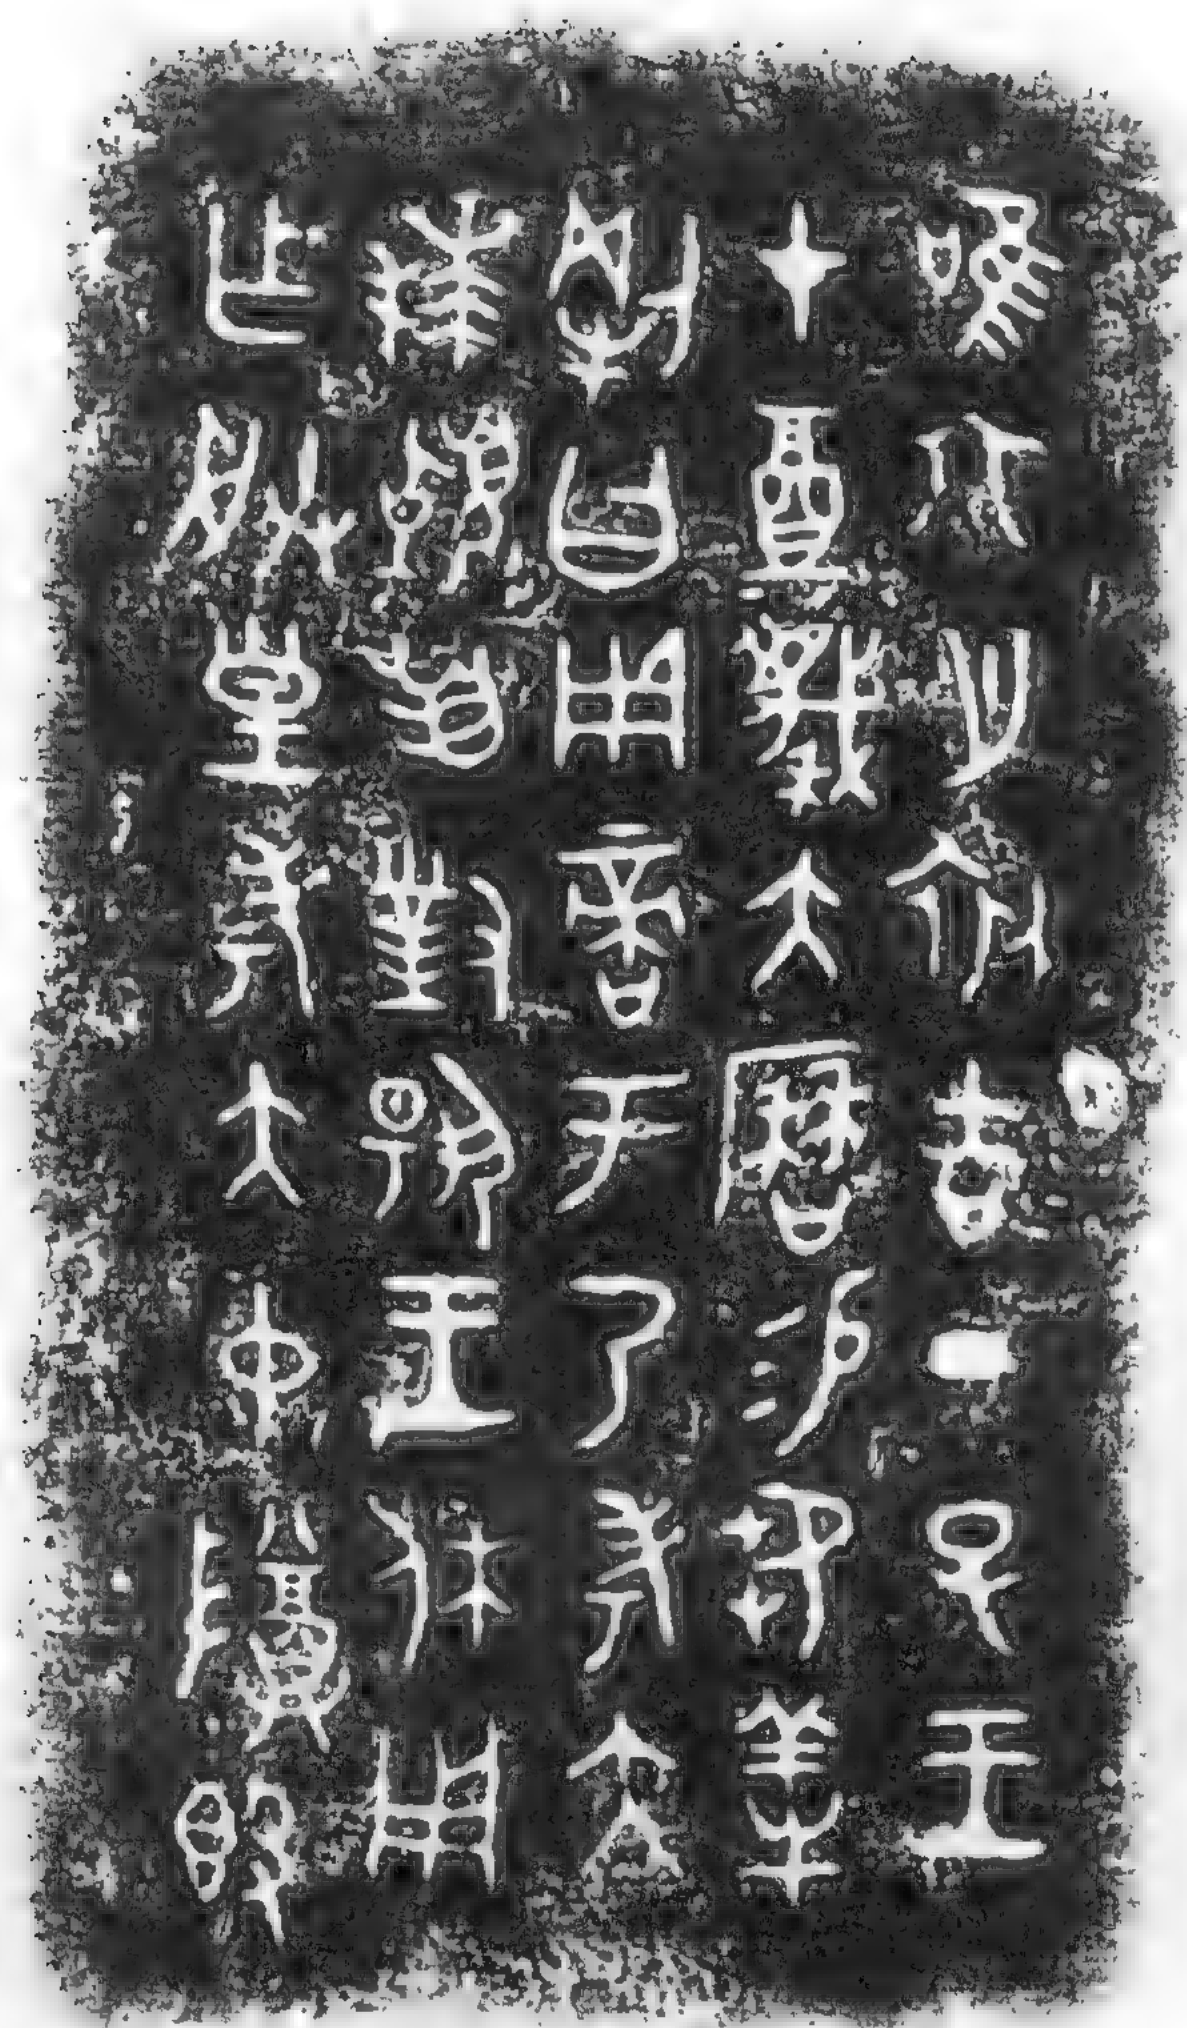 唯六月初吉丁巳王
才奠蔑大曆易芻羍
犅曰用啻于乃考大
拜𩒨首對揚王休用
乍朕皇考大中尊𣪘